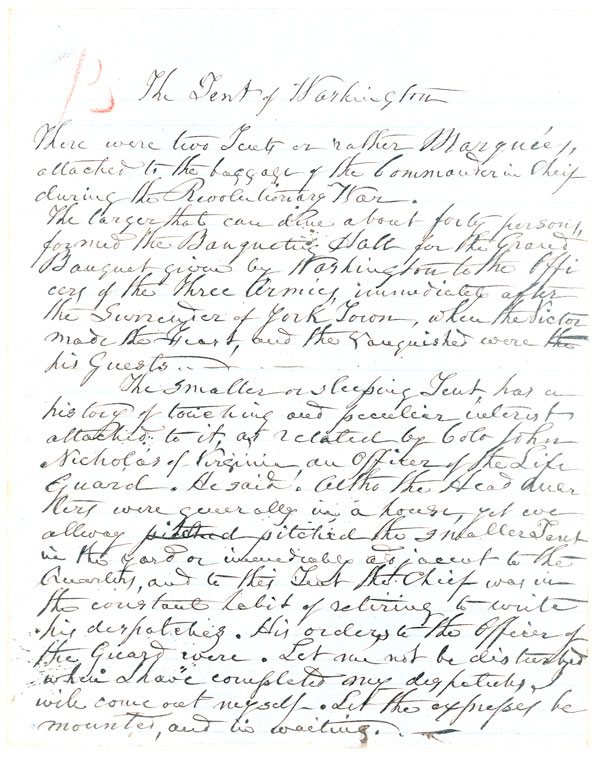 The Tent of Washington
There were two Tents or rather Marquées,
attached to the baggage of the Commander in Chief
during the Revolutionary War.
The larger that can dine about forty persons,
formed the Banqueting Hall for the Grand
Banquet given by Washington to the Offi
cers of the Three Armies, immediately after
the Surrender of York Town, when the Victor
made the Feast, and the Vanquished were the
his Guests
The smaller or sleeping Tent has a
history of touching and peculiar interest
attached to it, as related by Colo John
Nicholas of Virginia, an Officer of the Life
Guard. He said: Altho the Head Quar
ters were generally in a house, yet we
allway pitched pitched the smaller Tent
in the yard or immediately adjacent to the
Quarters, and to this Tent the Chief was in
the constant habit of retiring to write
his despatches. His orders to the Officer of
the Guard were. Let me not be disturbed
when I have completed my despatches, I
will come out myself. Let the expresses be
mounted, and in waiting.